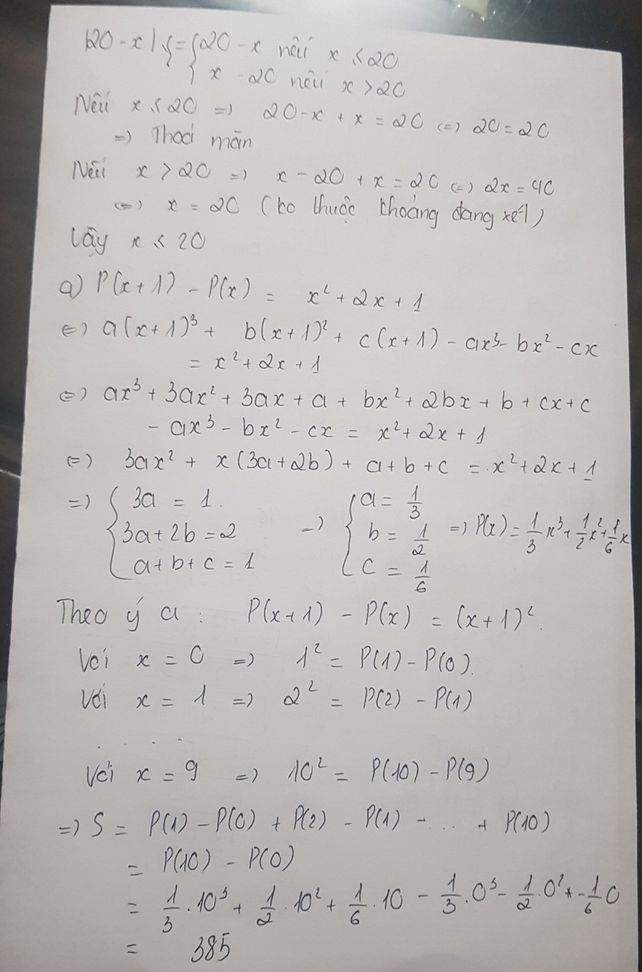 |20-x| = { 20-x nếu x ≤ 20
x - 20 nếu x > 20
Nếu x ≤ 20 => 20-x + x = 20 <=> 20 = 20
=> Thoả mãn
Nếu x > 20 => x - 20 + x = 20 <=> 2x = 40
<=> x = 20 (ko thuộc khoảng đang xét)
Vậy x ≤ 20
a) P(x+1) - P(x) = x² + 2x + 1
<=> a(x+1)³ + b(x+1)² + c(x+1) - ax³ - bx² - cx
= x² + 2x + 1
<=> ax³ + 3ax² + 3ax + a + bx² + 2bx + b + cx + c
- ax³ - bx² - cx = x² + 2x + 1
<=> 3ax² + x(3a+2b) + a+b+c = x² + 2x + 1
=> { 3a = 1 => { a = 1/3
3a + 2b = 2 b = 1/2 => P(x) = 1/3 x³ + 1/2 x² + 1/6 x
a+b+c = 1 c = 1/6
Theo ý a : P(x+1) - P(x) = (x+1)².
Với x = 0 => 1² = P(1) - P(0).
Với x = 1 => 2² = P(2) - P(1)
. . . .
Với x = 9 => 10² = P(10) - P(9)
=> S = P(1) - P(0) + P(2) - P(1) - ... + P(10)
= P(10) - P(0)
= 1/3 . 10³ + 1/2 . 10² + 1/6 . 10 - 1/3 . 0³ - 1/2 . 0² - 1/6 0
= 385